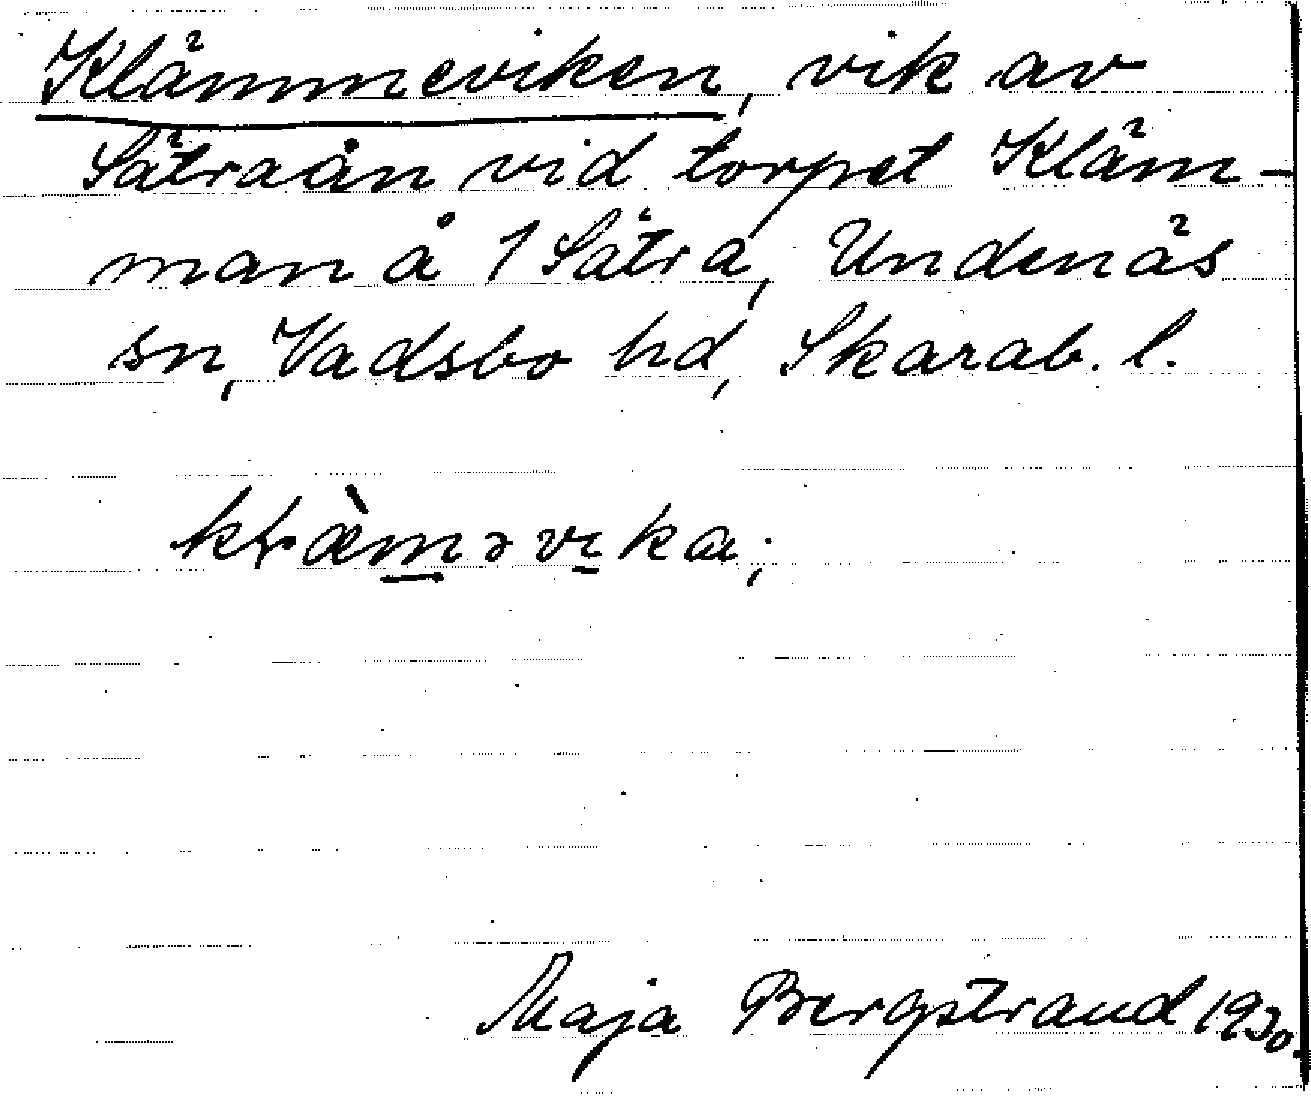 Klämmeviken, vik av
Sätraån vid torpet Kläm-
man å 1 Sätra, Undenäs
sn, Vadsbo hd, Skarab. l.
Maja Bergstrand 1930.